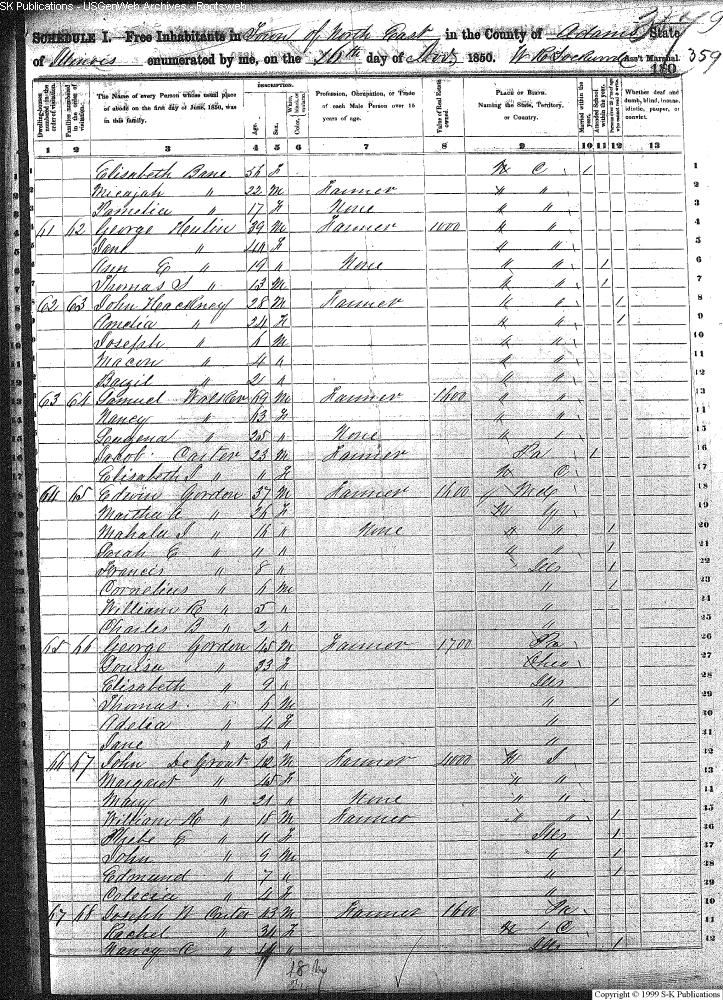 SK Publications - USGenWeb Archives - Rootsweb
SCHEDULE I.—Free Inhabitants in Town of North East in the County of Adams State
of Illinois enumerated by me, on the 26th day of Nov 1850. Ass't Marshal. 359
180
Dwelling-houses numbered in the order of visitation.
Families numbered in the order of visitation.
The Name of every Person whose usual place of abode on the first day of June, 1850, was in this family.
DESCRIPTION.
Age.
Sex.
Color,
Profession, Occupation, or Trade of each Male Person over 15 years of age.
Value of Real Estate owned.
PLACE OF BIRTH. Naming the State, Territory, or Country.
Married within the year.
Attended School within the year.
Whether deaf and dumb, blind, insane, idiotic, pauper, or convict.
1 2 3 4 5 6 7 8 9 10 11 12 13
1 Elisabeth Bane 56 F N C 1
2 Micajah " 22 M Farmer " "
3 Pamelia " 17 F None " "
4 61 62 George 39 M Farmer 1000 " "
5 Jane " 40 F " "
6 Ann E " 19 " None " " 1
7 Thomas S " 13 M " " 1
8 62 63 John Hackney 28 M Farmer " " 1
9 Amelia " 24 F " " 1
10 Joseph " 6 M " "
11 Macon " 4 " " "
12 " 2 " " "
13 63 64 Samuel Walker 69 M Farmer 1600 " "
14 Nancy " 63 F " "
15 " 25 " None "
16 Jacob Carter 23 M Farmer Pa 1
17 Elisabeth J " " F N C
18 64 65 Edwin Gordon 37 M Farmer 1600 Md
19 Martha A " 36 F N Y
20 Mahala J " 16 " None " " 1
21 Sarah E " 11 " " " 1
22 Francis " 8 " Ills 1
23 Cornelius " 6 M " 1
24 William R " 5 " "
25 Charles B " 2 " "
26 65 66 George Gordon 45 M Farmer 1700 Pa
27 Louisa " 33 F Ohio
28 Elisabeth " 9 " Ills
29 Thomas " 6 M " 1
30 Adelia " 4 F "
31 Jane " 3 " "
32 66 67 John DeGroat M Farmer 4000 N J
33 Margaret " 45 F " "
34 Mary " 21 " None " "
35 William H " 18 M Farmer " " 1
36 Phebe E " 11 F Ills 1
37 John " 9 M " 1
38 Edmund " 7 " " 1
39 " 4 F "
40 67 68 Joseph N Carter 43 M Farmer 1600
41 Rachel " 34 F N C
42 Nancy C " 14 " Ills 1
18
Copyright © 1999 S-K Publications